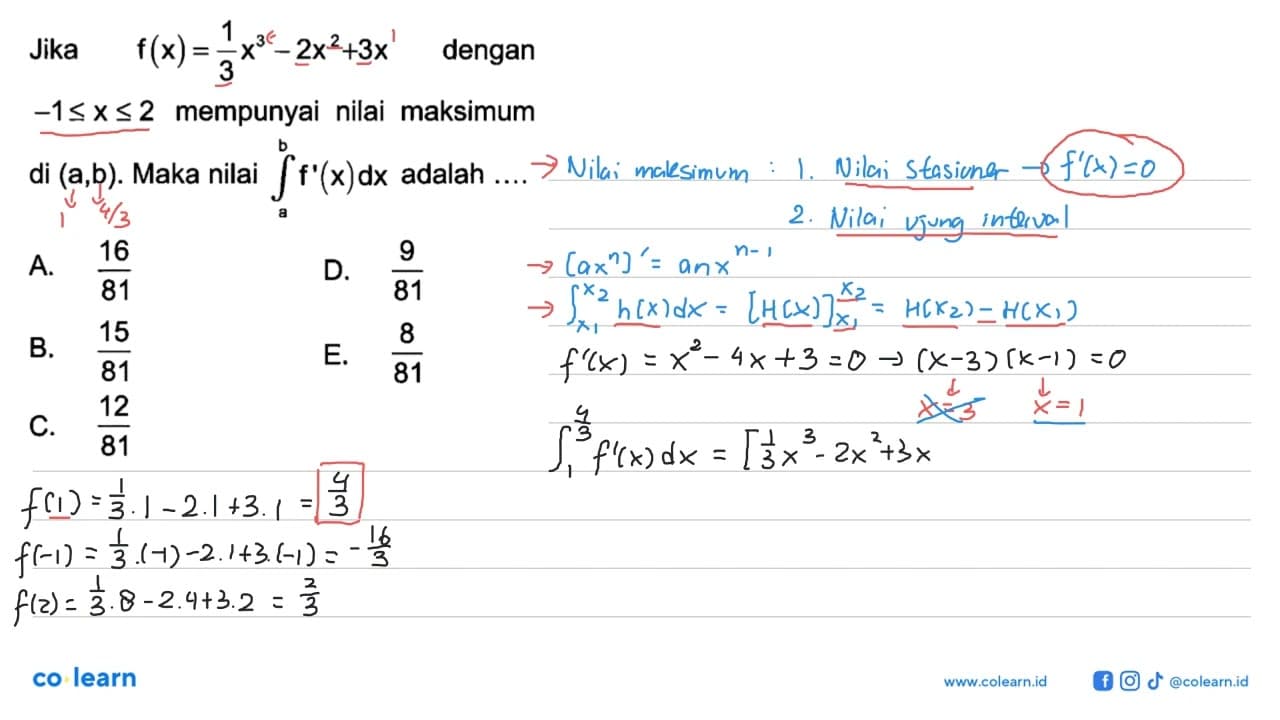 Jika f(x) = 1/3 x³ - 2x² + 3x¹ dengan
-1 ≤ x ≤ 2 mempunyai nilai maksimum
di (a,b). Maka nilai ∫ₐᵇ f'(x)dx adalah ....
1 4/3
A. 16/81
B. 15/81
C. 12/81
D. 9/81
E. 8/81
→ Nilai maksimum : 1. Nilai Stasioner → f'(x) = 0
2. Nilai ujung interval
→ [axⁿ]' = anxⁿ⁻¹
→ ∫_{x₁}^{x₂} h(x)dx = [H(x)]_{x₁}^{x₂} = H(x₂) - H(x₁)
f'(x) = x² - 4x + 3 = 0 → (x-3)(x-1) = 0
x = 3 x = 1
∫₁^{4/3} f'(x)dx = [1/3 x³ - 2x² + 3x
f(1) = 1/3 . 1 - 2.1 + 3.1 = 4/3
f(-1) = 1/3 .(-1) - 2.1 + 3.(-1) = -16/3
f(2) = 1/3 . 8 - 2.4 + 3.2 = 2/3
co learn
www.colearn.id @colearn.id